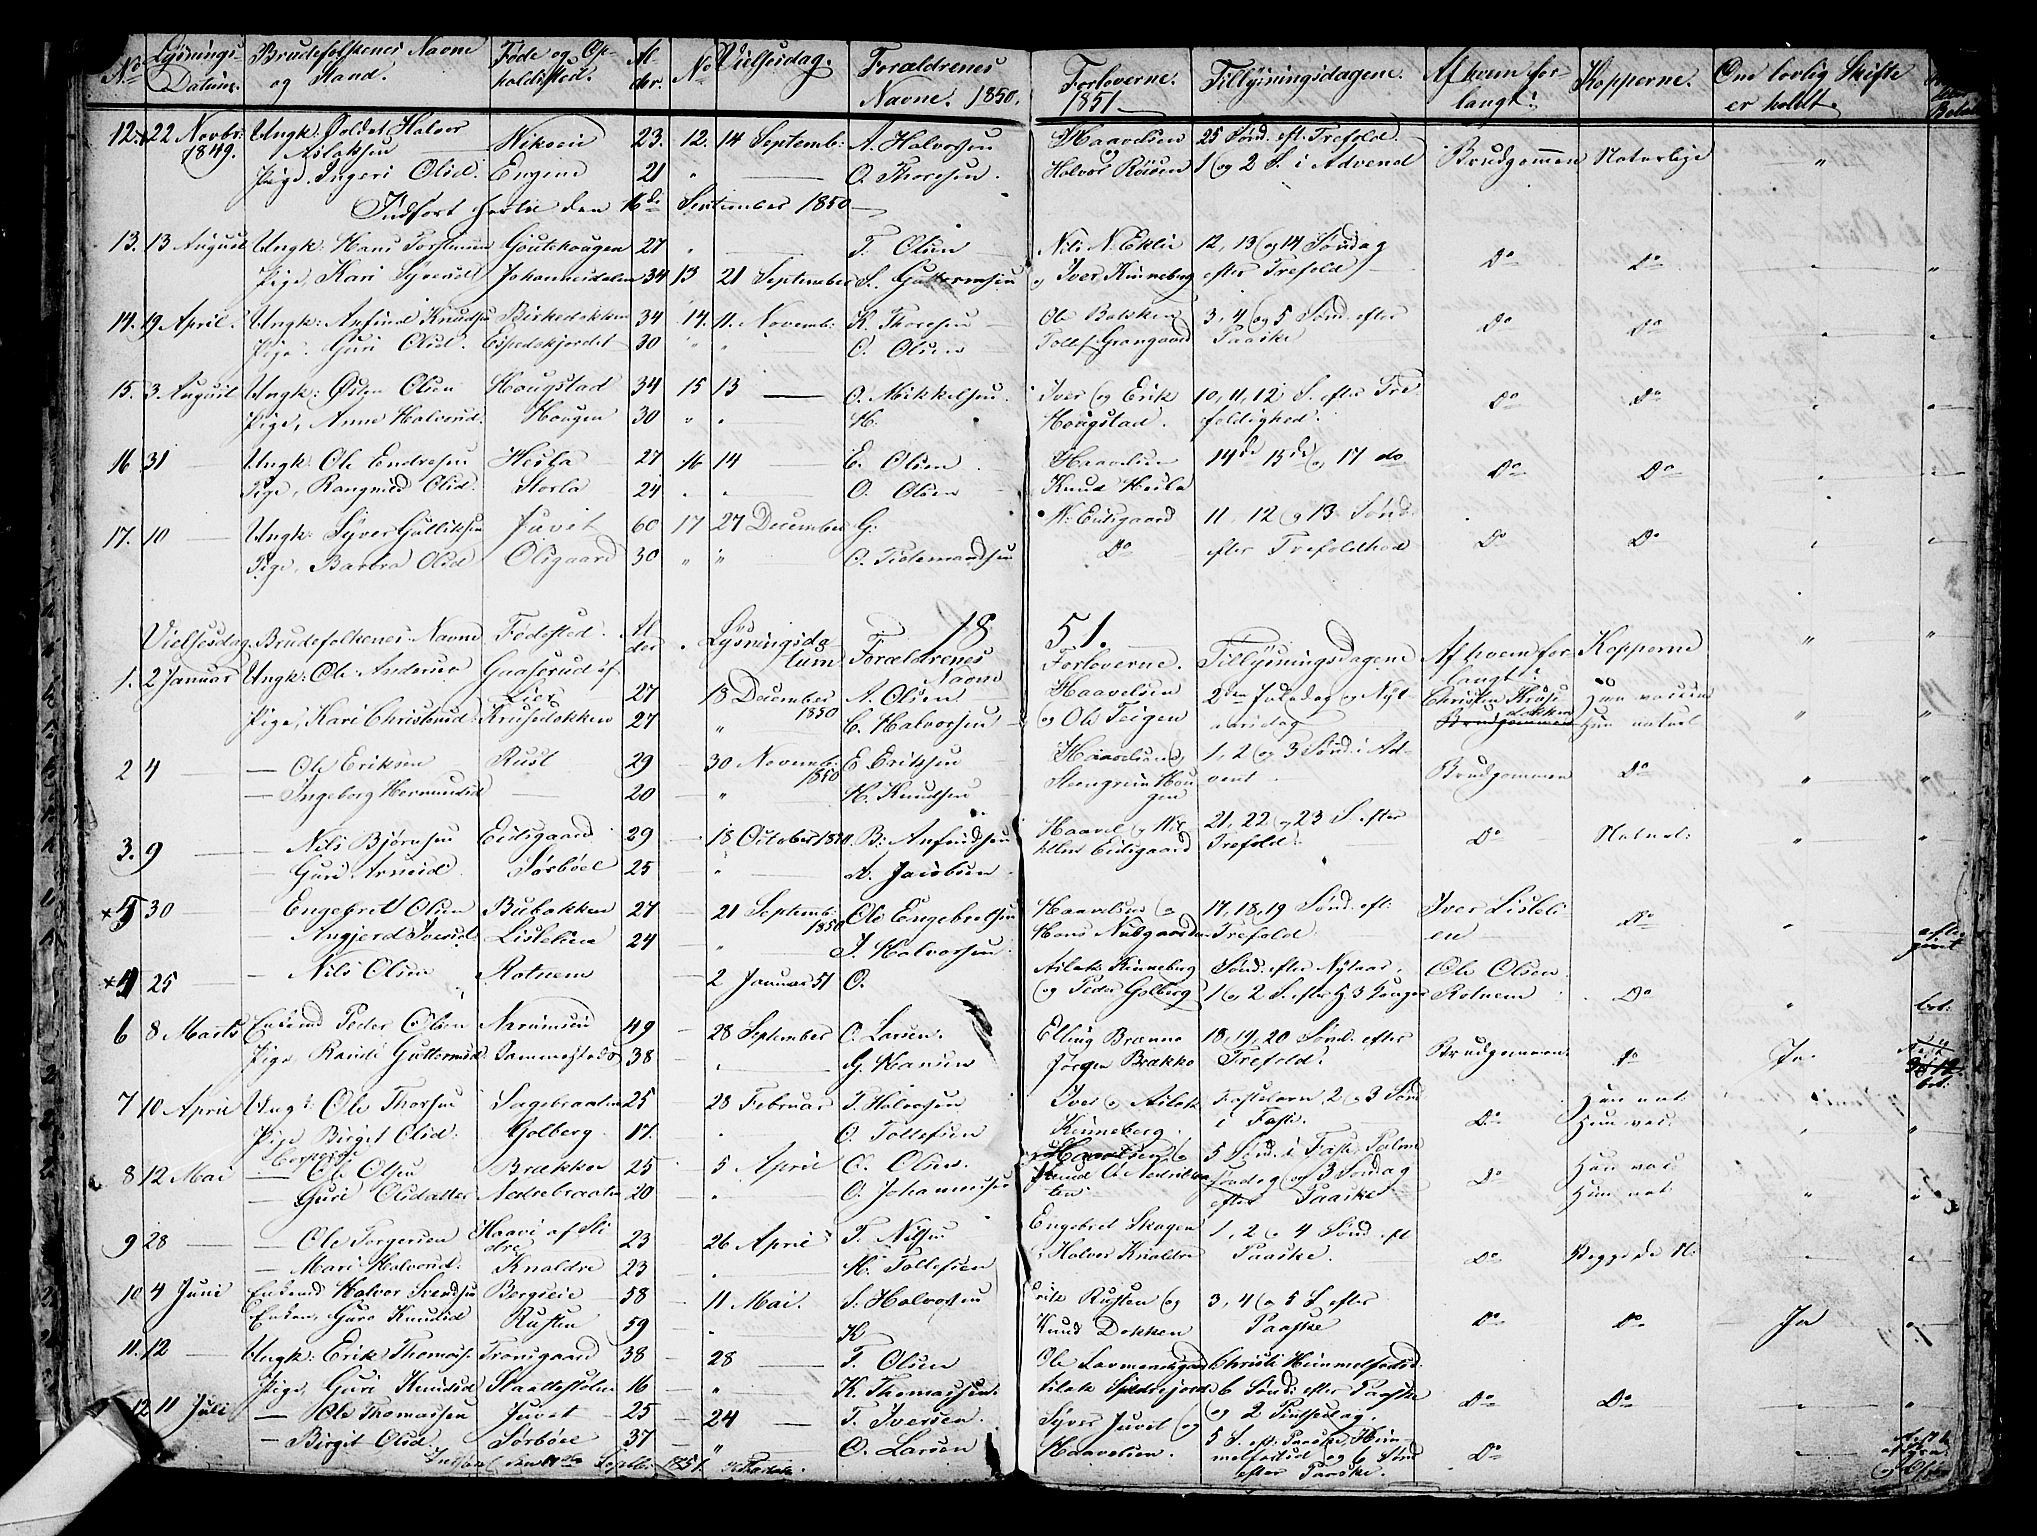 No Lysnings- Datum. Brudefolkenes Navne og Stand. Føde og Opholdssted. Alder. No Vielsesdag. Forældrenes Navne. 1850. Forloverne. 1851. Tillysningsdagene. Af hvem forlangt? Kopperne. Om lovlig Skifte er holdt.
12. 22 Novbr: Ungk: Halvor Nikseie 23. 12. 14 Septemb: A. Halvorsen Haavelsen 25 Sønd. eft. Trefold.
1849. Aslaksen og
Pige. Ingeri Olsd. Engene 21 " — O. Thoresen. Halvor Røisen 1 og 2 S. i Advend Brudgommen Naturlige "
Indført hertil den 16de September 1850
13. 13 August Ungk: Hans Torstensen Goutehougen 27 T. Olsen Nils N. Eklie 12, 13 og 14 Søndag Do Do
Pige, Kari Syversd Johannesdalen 34 13 21 September S. Guttormsen og Iver Kinneberg efter Trefold "
14. 19 April. Ungk: Anfind Knudsen Birkedokken 34 14. 11. Novemb: K. Thoresen Ole Bakken 3, 4 og 5 Sønd. efter Do Do
Pige. Guri Olsd. Espedokjordet 30 " " — O. Olsen Tollef Grangaard Paaske
15. 3. August Ungk: Østen Olsen Hougstad 34 15 13 — O. Mikkelsen. Iver og Erik 10, 11, 12 S. efter Tre- Do Do
Pige, Anne Halvorsd. Hougen 30 " " H. Hougstad. foldighed.
16 31 — Ungk: Ole Endresen Hesla 27 16 14 E. Olsen Haavelsen 14de 15de og 17 do Do Do
Pige, Rangned Olsd. Storla 24 " " — O. Olsen Knud Hesla
17. 10 — Ungk: Syver Gulliksen Juvet 60 17 27 December G: N: Eidsgaard 11, 12 og 13 Sønd. Do Do
Pige, Barbra Olsd Olsgaard 30 " " O. Tidemandsen Do efter Trefoldhed
1851.
Vielsesdag Brudefolkenes Navne Fødested. Alder Lysningsdatum Forældrenes Navne Forloverne. Tillysningsdagene Af hvem forlangt? Kopperne
1. 2 Januar Ungk: Ole Andersen Gaaserud af Lier 27 18 December 1850 A. Olsen Haavelsen 2den Juledag og Nyt- Christen Kruse- Han vaccin
Pige, Kari Christensd Kruselokken 27 " C. Halvorsen og Ole Teigen aarsdag lokken Brudgommen Hun naturl " "
2 4 — Ole Eriksen Rust 29 — 30 Novemb: 1850 E Eriksen Haavelsen og 1, 2 og 3 Sønd. i Ad- Brudgommen Do
— Ingeborg Hermundsd — 20 — " H. Knudsen Steengrim Hougen vent
3. 9 — Nils Bjørnsen Eidsgaard 29 — 18 October 1850. B: Anfindsen Haavel og 21, 22 og 23 S. efter Do Naturl:
— Guri Arnesd. Sørbøel 25 " A. Jacobsen. Eidsgaard Trefold.
× 5 30 — Engebret Olsen Bubakken 27 — 21 Septemb: 1850 Ole Engebretsen Haavelsen og 17, 18, 19 Sønd. eft. Iver Lisleli- Do
— Angjerd Iversd. Lislelien 24 " I. Halvorsen. Hans Nubgaarden Trefold. en
× 4 25 — Nils Olsen Rotnem 2 Januar 51 O. Aslak Kinneberg Sønd. efter Nytaar, Ole Olsen Do
og Peder Golberg 1 og 2 S. efter H 3 Konger Rotnem
6 8 Marts Enkemd Peder Olsen 49 — 28 September O. Larsen. Elling Brænne 18, 19, 20 Sønd. efter Brudgommen. Do Ja
Pige, Randi Guttormsd. 38 — G. Hansen Jørgen Brække Trefold.
7 10 April Ungk: Ole Thorsen Sagebraaten 25 — 28 Februar T. Halvorsen Iver og Aslak Fastelavn, 2 og 3 Sønd Do Han nat
Pige Birgit Olsd. Golberg. 17. " O. Tollefsen Kinneberg. i Faste. Hun vac.
8 12 Mai — Ole Olsen Brækken 25 — 5 April O. Olsen. Haavelsen og 5 Sønd. i Fast. Palme Do Han vac.
— Guri Olsdatter Nedrebraaten 20 " O. Johannessen Knud O. Nedrebraaten Søndag og 3 Søndag efter Paaske Hun nat "
9 28 — — Ole Torgersen Haavi af Slidre 23 — 26 April T. Nilsen Engebret Skogen 1, 2 og 4 Sønd. eft Do Begge de N.
— Mari Halvorsd. Knaldre 23 " H. Tollefsen Halvor Knaldre Paaske.
10 4 Juni Enkemd Halvor Svendsen Bergseie 58 — 11 Mai. S. Halvorsen Erik Rusten og 3, 4 og 5 S. efter Do Do Ja
Enken, Guro Knudsd Rusten 59 " K Knud Dokken Paaske
11. 12 — Ungk: Erik Thomass. Trousgaard 38 — 28 — T. Olsen Ole Lavmendsgaard Christi Himmelfartsd.
Pige, Guri Knudsd Skaltestolen 16 — " K. Thomassen. Aslak 6 Sønd: efter Paaske og 2 Pintsedag. Do Do
12 11 Juli — Ole Thomassen Juvet 25 — 24 — T. Iversen. Syver Juvet og 5 S. eft. Paaske, Him-
— Birgit Olsd. Sørbøel 37 — " O. Larsen Haavelsen. melfartsd og 6 Sønd efter Paaske. Do
Indført den 11te Septbr. 1851.